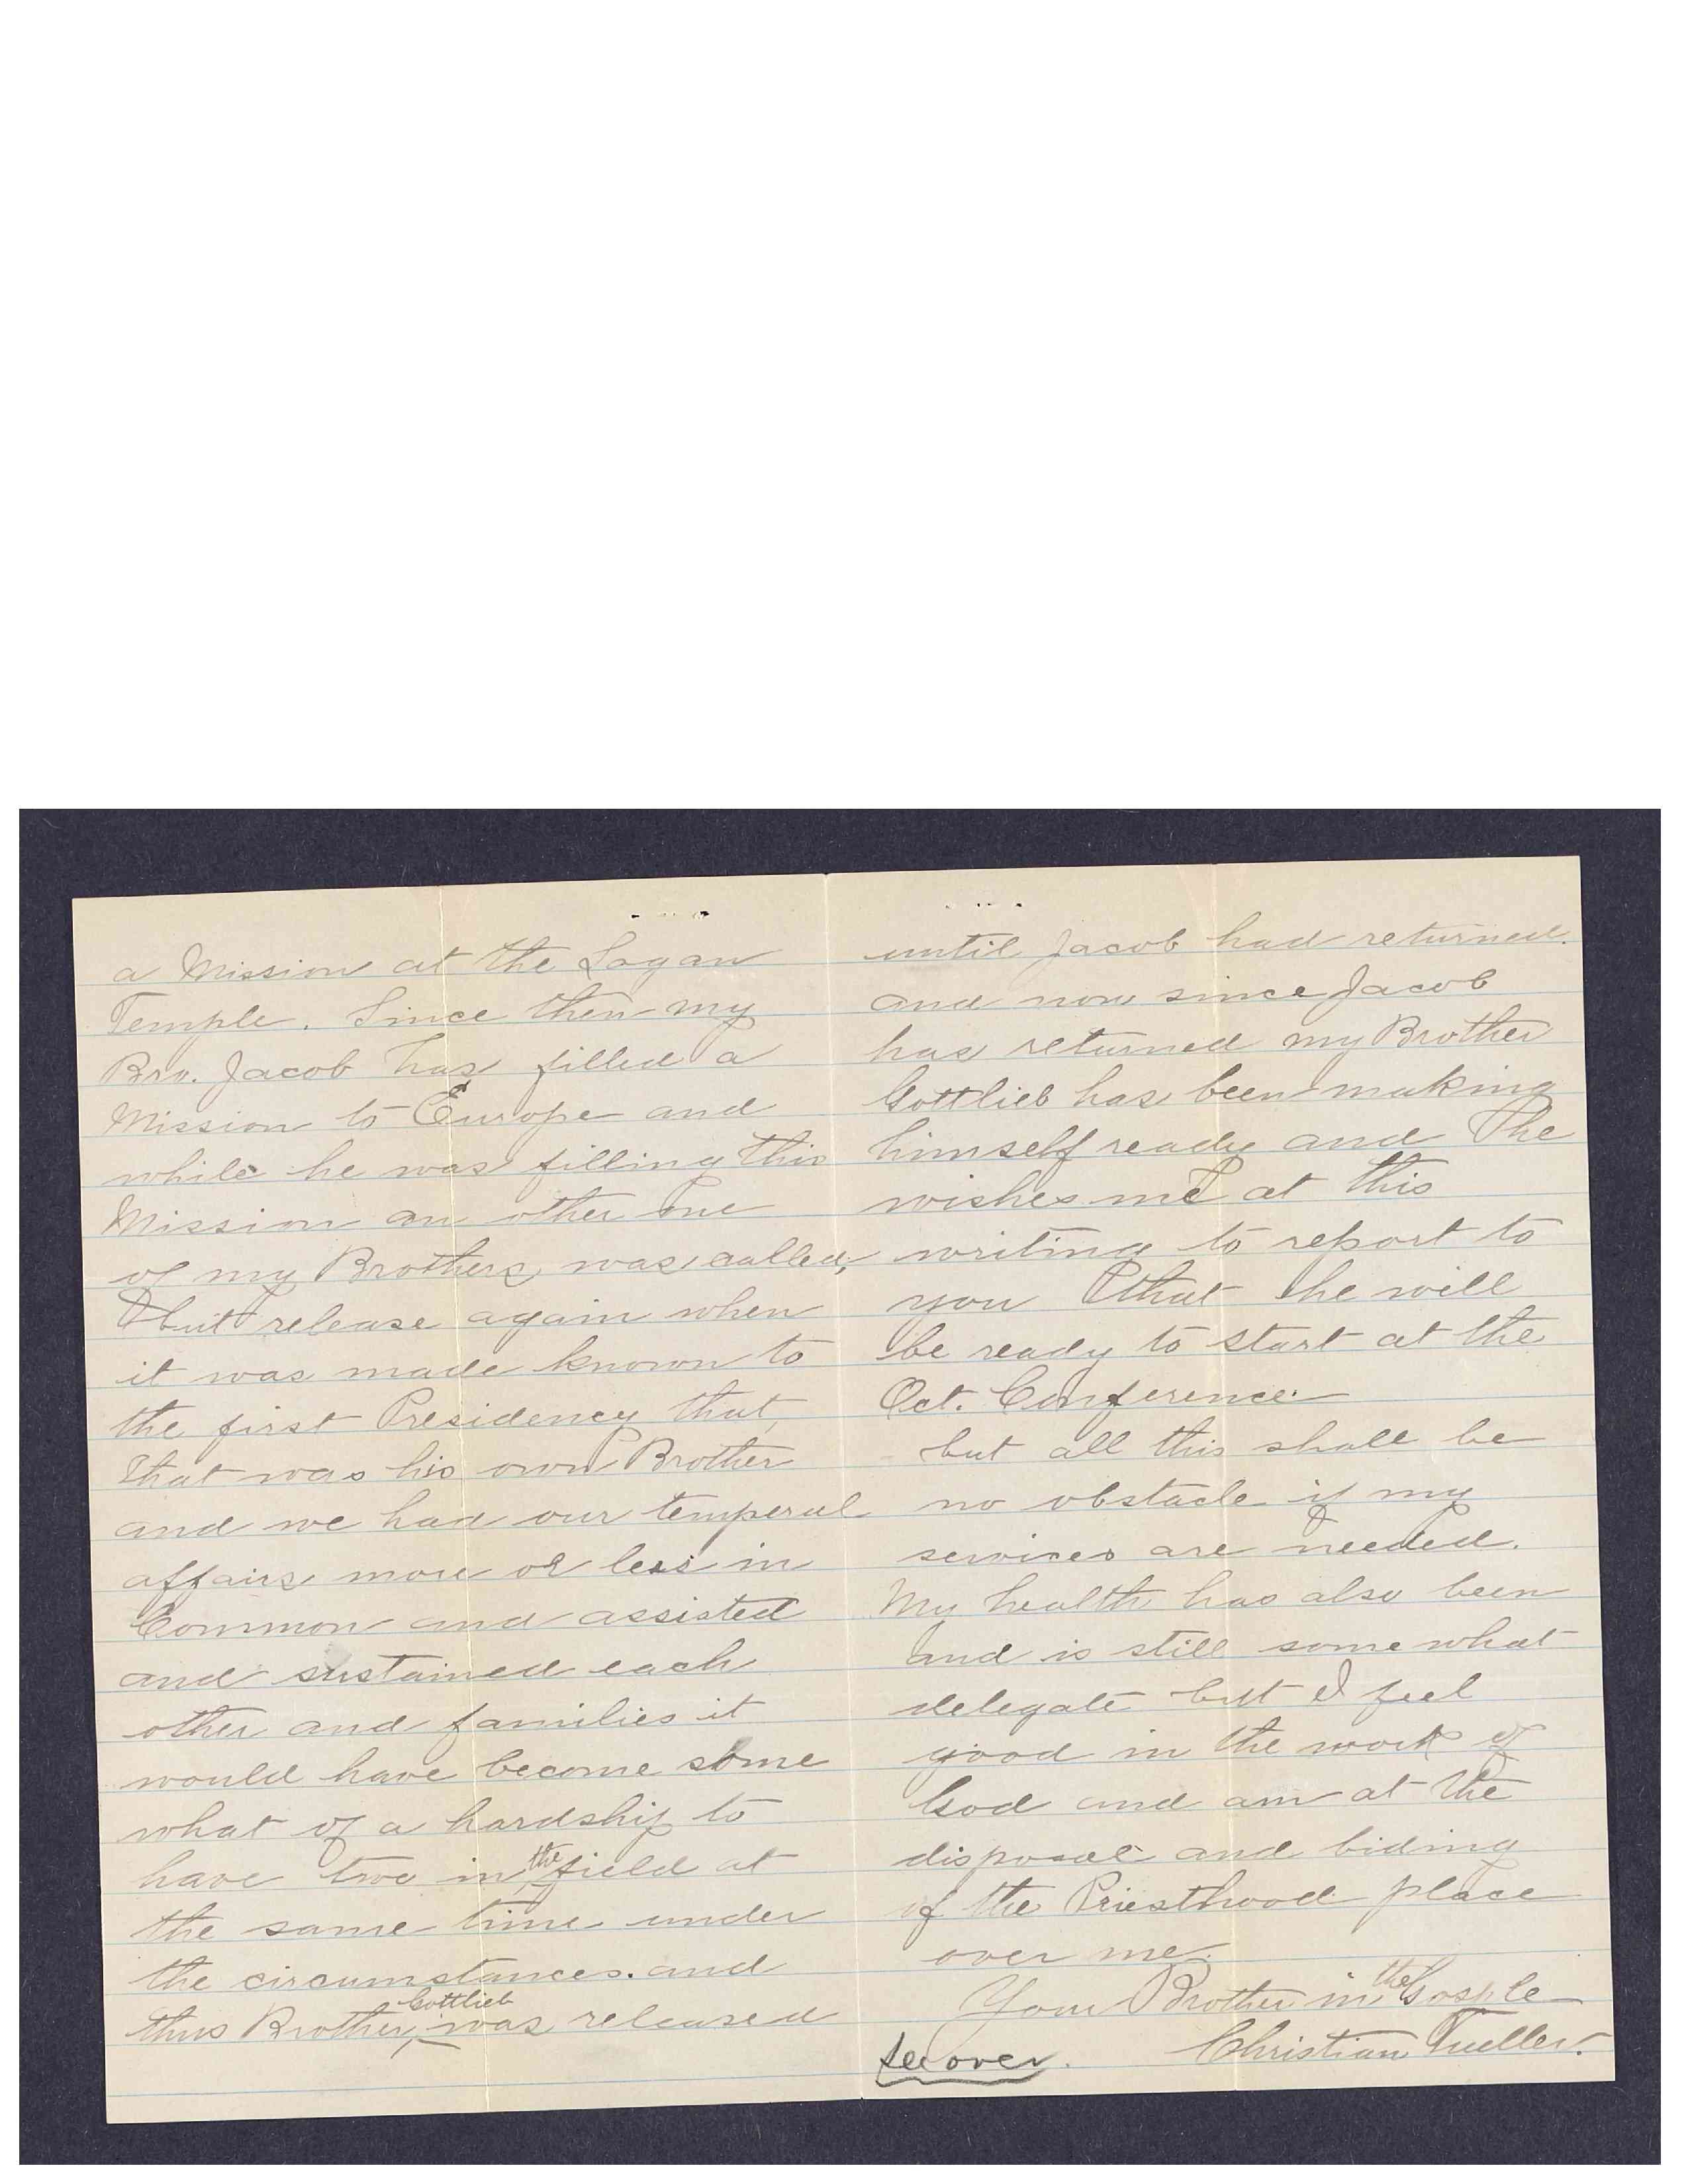 a Mission at the Logan
Temple. Since then my
Bro. Jacob has filled a
Mission to Europe and
while he was filling this
Mission an other one
of my Brothers was called,
but release again when
it was made known to
the first Presidency that,
that was his own Brother
and we had our temperal
affairs more or less in
Common and assisted
and sustained each
other and families it
would have become some
what of a hardship to
have two in the field at
the same time under
the circumstances. and
thus Brother Gottlieb was released
until Jacob had returned.
and now since Jacob
has returned my Brother
Gottlieb has been making
himself ready and he
wishes me at this
writing to report to
you that he will
be ready to start at the
Oct. Conference.
but all this shall be
no obstacle if my
services are needed.
My health has also been
and is still some what
delegate but I feel
good in the work of
God and am at the
disposal and biding
of the Priesthood place
over me.
Your Brother in the Gosple
Christian Tueller.
see over.